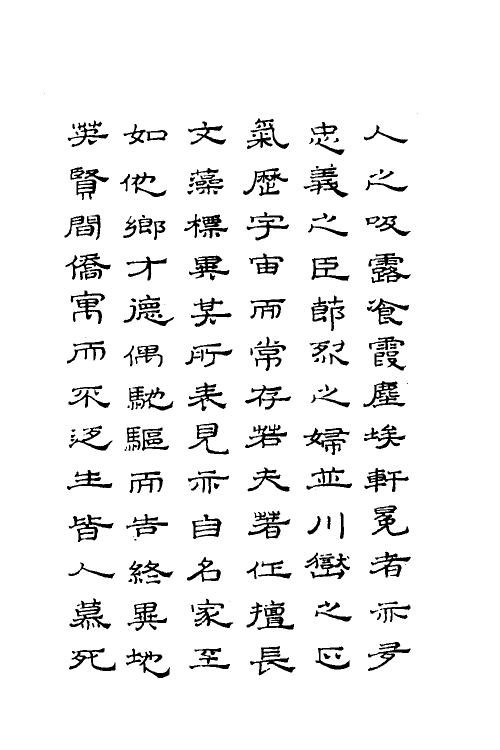 人之吸露飡霞塵埃軒冕者亦多
忠義之臣節烈之婦並川嶽之正
氣歷宇宙而常存若夫著作擅長
文藻標異其所表見亦自名家至
如他鄉才德偶馳驅而告終異地
英賢間僑寓而不返生皆人慕死